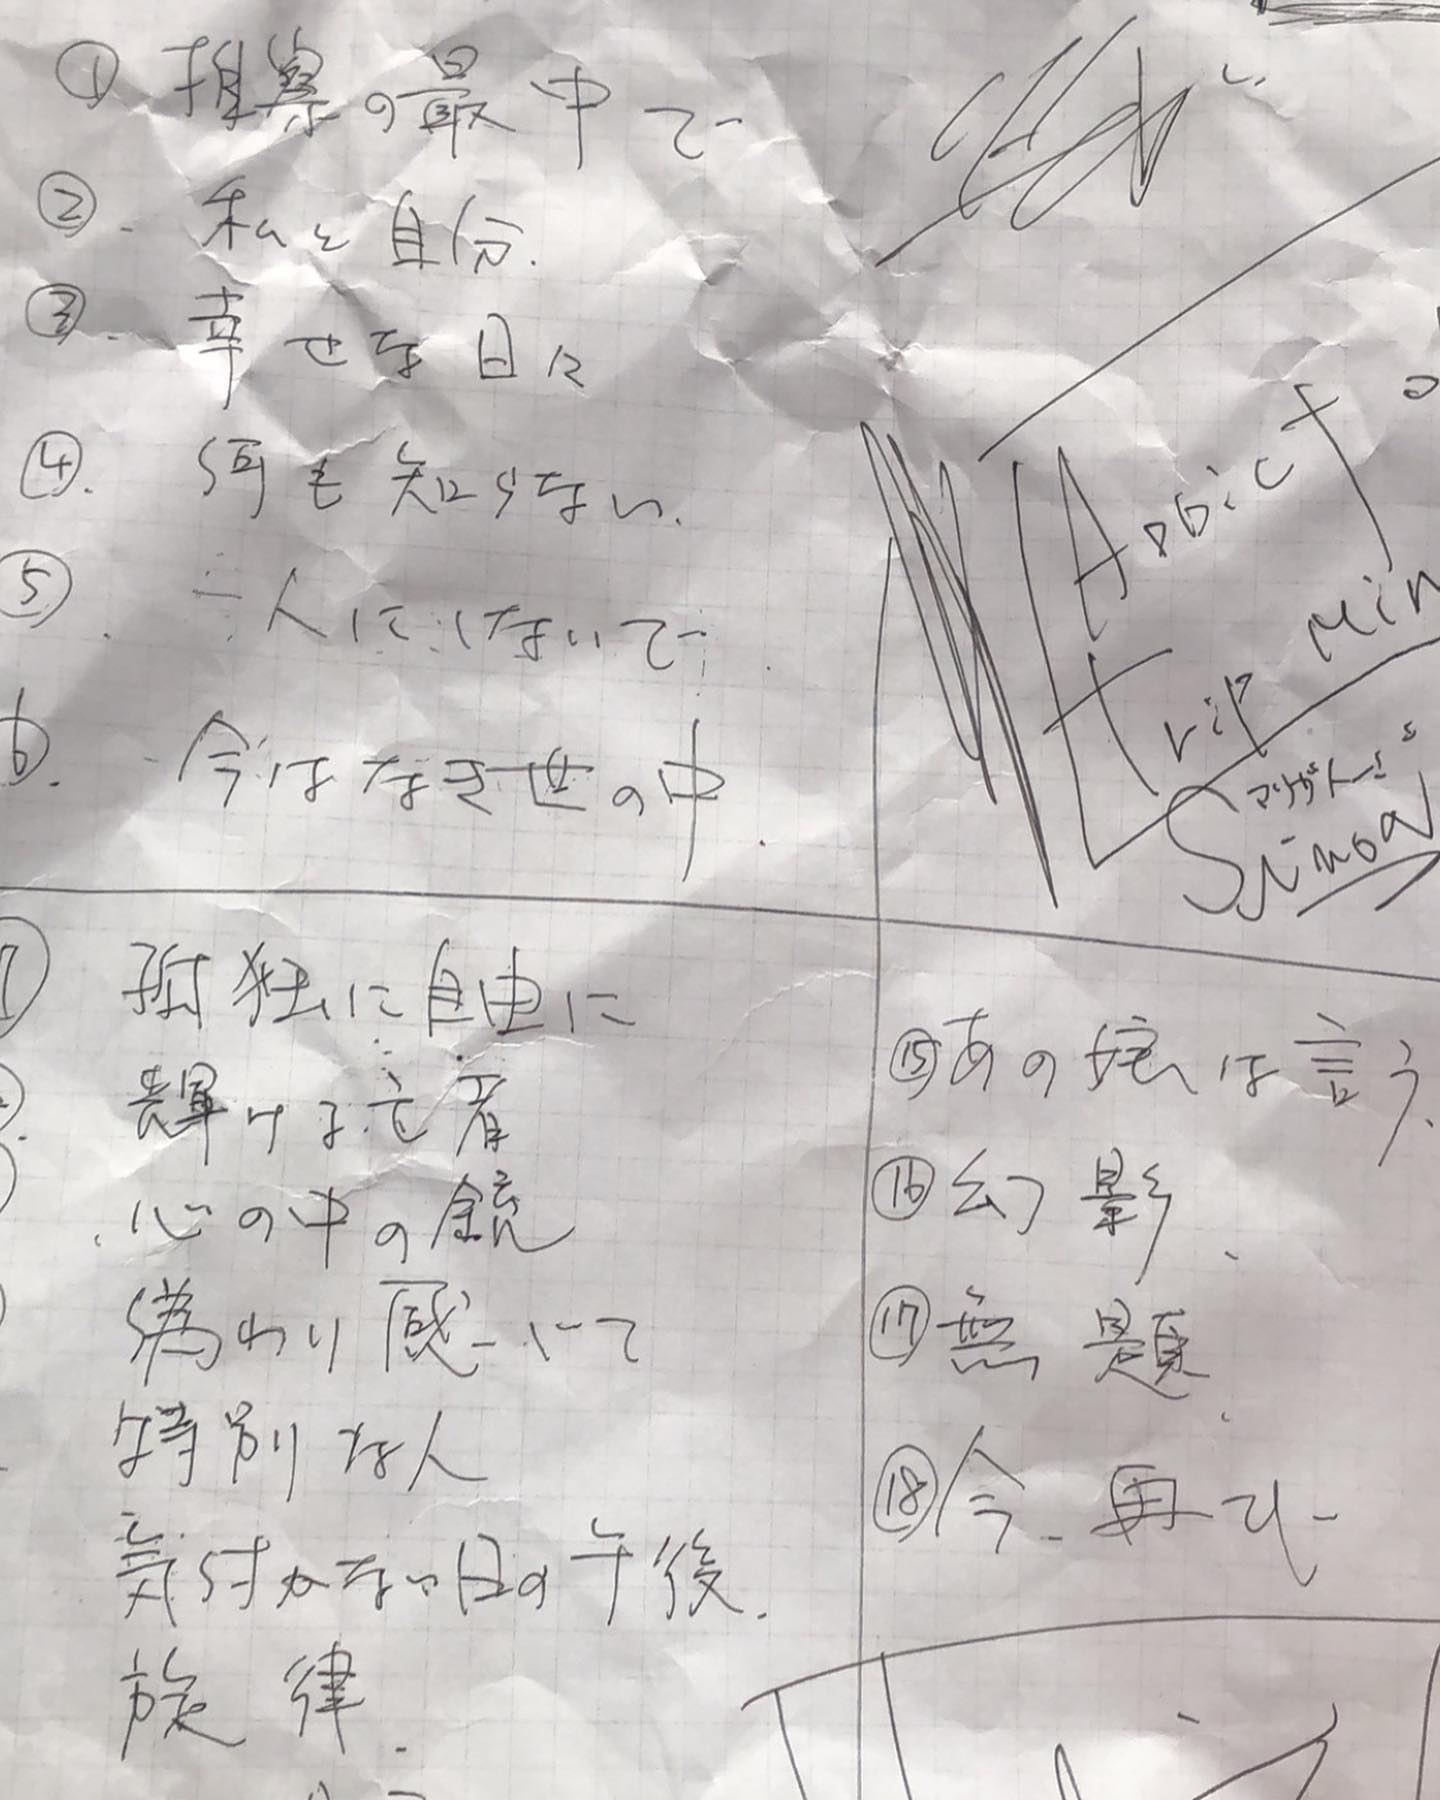 ① 推察の最中で
② 私と自分.
③ 幸せな日々
④. 何も知らない.
⑤ 一人にしないで
6. 今はなき世の中.
⑦ 孤独に自由に
輝ける亡者
心の中の鏡
偽わり感じて
特別な人
気付かない日の午後.
旋律.
Addict
trip min
⑮あの娘は言う.
⑯幻影.
⑰無題.
⑱今.再び